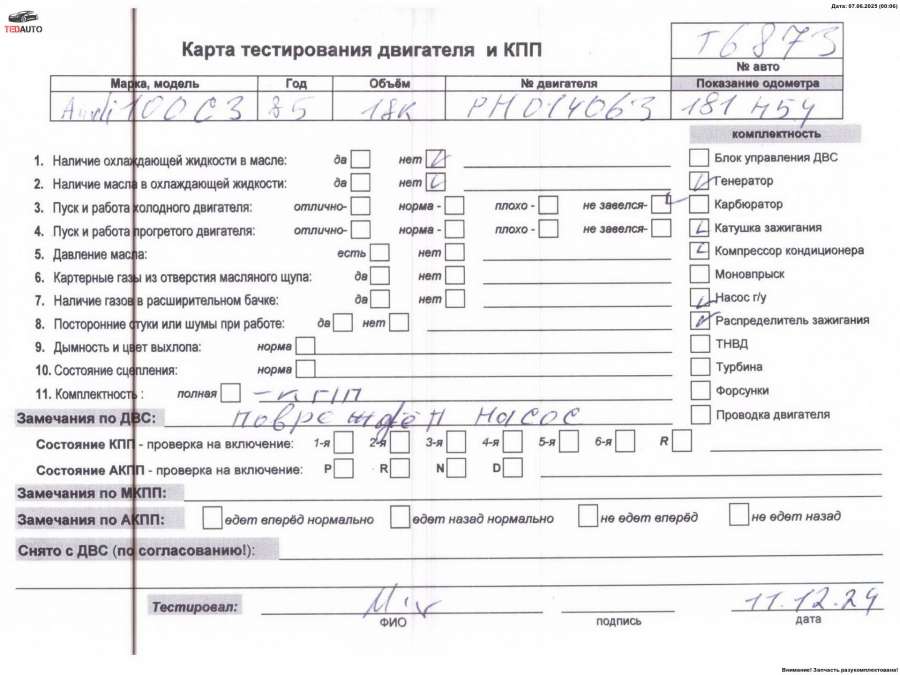 Дата: 07.06.2025 (00:06)
TEDAUTO
Карта тестирования двигателя и КПП
T6873
№ авто
Марка, модель Год Объём № двигателя Показание одометра
Audi 100 C3 85 1.8K PH014063 181 454
комплектность
1. Наличие охлаждающей жидкости в масле: да нет
2. Наличие масла в охлаждающей жидкости: да нет
3. Пуск и работа холодного двигателя: отлично- норма - плохо - не завелся-
4. Пуск и работа прогретого двигателя: отлично- норма - плохо - не завелся-
5. Давление масла: есть нет
6. Картерные газы из отверстия масляного щупа: да нет
7. Наличие газов в расширительном бачке: да нет
8. Посторонние стуки или шумы при работе: да нет
9. Дымность и цвет выхлопа: норма
10. Состояние сцепления: норма
11. Комплектность : полная - КПП
Блок управления ДВС
Генератор
Карбюратор
Катушка зажигания
Компрессор кондиционера
Моновпрыск
Насос г/у
Распределитель зажигания
ТНВД
Турбина
Форсунки
Проводка двигателя
Замечания по ДВС: поврежден насос
Состояние КПП - проверка на включение: 1-я 2-я 3-я 4-я 5-я 6-я R
Состояние АКПП - проверка на включение: P R N D
Замечания по МКПП:
Замечания по АКПП: едет вперёд нормально едет назад нормально не едет вперёд не едет назад
Снято с ДВС (по согласованию!):
Тестировал: 11.12.24
ФИО подпись дата
Внимание! Запчасть разукомплектована!